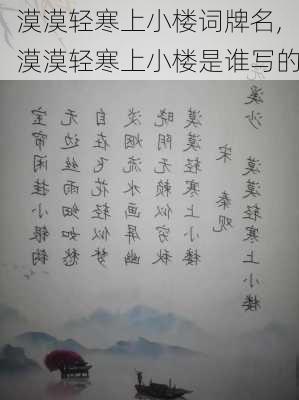 漠漠轻寒上小楼词牌名,
漠漠轻寒上小楼是谁写的
溪沙 漠漠轻寒上小楼
宋 秦观
漠漠轻寒上小楼
晓阴无赖似穷秋
淡烟流水画屏幽
自在飞花轻似梦
无边丝雨细如愁
宝帘闲挂小银钩